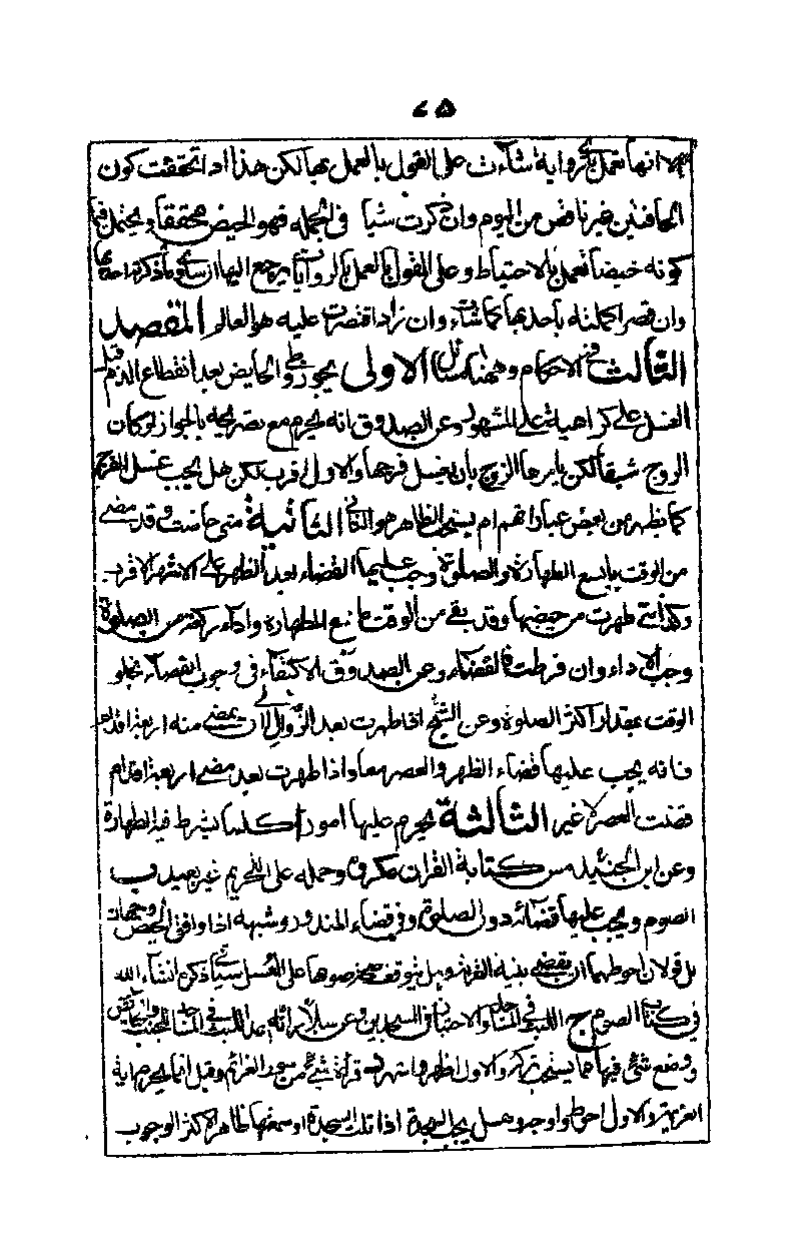 ٧٥
الا انها تعمل باى رواية شاءت على القول بالعمل بها لكن هذا اذا تحققت كون
الحافتين غير ناقص من اليوم وان ذكرت شيا فى الجملة فهو الحيض محققا ويحتمل فيما
كونه حيضا تعمل بالاحتياط وعلى القول بالعمل بالروايات يرجع اليها ان ساوى ما ذكرته احديها
وان قصر اكملته باحديها كما شاءت وان زاد اقتصرت عليه هو العالم المقصد
الثالث فى الاحكام وههنا مسائل الاولى يجوز وطى الحايض بعد انقطاع الدم قبل
الغسل على كراهية على المشهور وعن الصدوق انه يحرم مع تصريحه بالجواز لو كان
الزوج شبقا لكن يامرها الزوج بان يغسل فرجها والاول اقرب لكن هل يجب غسل الفرج
كما يظهر من بعض عباراتهم ام يستحب الظاهر هو الثانى الثانية متى حاضت وقد مضى
من الوقت ما يسع الطهارة والصلوة وجب عليها القضاء بعد الطهر على الاشهر الاقرب
وكذا متى طهرت من حيضها وقد بقى من الوقت ما يسع الطهارة واداء ركعة من الصلوة
وجب الاداء وان فرطت فالقضاء وعن الصدوق الاكتفاء فى وجوب القضاء بخلو
الوقت بمقدار اكثر الصلوة وعن الشيخ اذا طهرت بعد الزوال الى ان يمضى منه اربعة اقدام
فانه يجب عليها قضاء الظهر والعصر معا واذا طهرت بعد مضى اربعة اقدام
قضت العصر لا غير الثالثة يحرم عليها امور ا كلما يشرط فيه الطهارة
وعن ابن الجنيد مس كتابة القران مكروه وحمله على التحريم غير بعيد ب
الصوم ويجب عليها قضائه دون الصلوة وفى قضاء المنذور وشبهه اذا وافق الحيض وجهان
بل قولان احوطهما ان تقضى بنية القربة وهل يتوقف صومها على الغسل سياتى ذكره انشاء الله
فى كتاب الصوم ج اللبث فى المساجد والاجتياز فى المسجدين وعن سلار انه عد اللبث فى المساجد للجنب والحايض
ووضع شئ فيها مما يستحب تركه والاول اظهر واشهر د قراءة شئ من سور العزائم وقيل انما يحرم اية
العزيمة والاول احوط واوجه وهل يجب السجدة اذا تلت السجدة او سمعتها ظاهر الاكثر الوجوب